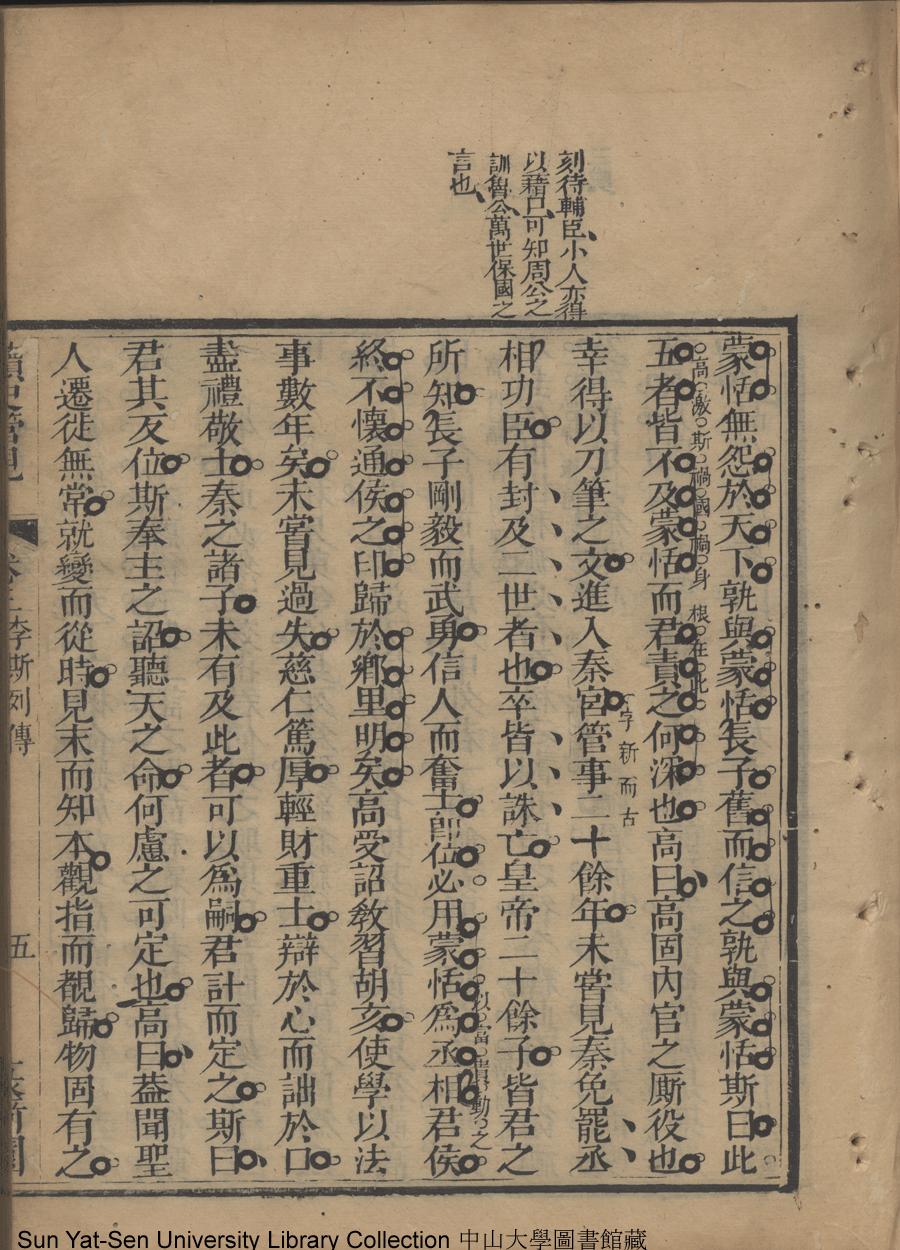 刻待輔臣小人亦得
以藉口可知周公之
訓魯公萬世保國之
言也
蒙恬無怨於天下孰與蒙恬長子舊而信之孰與蒙恬斯曰此
高激斯禍國禍身根在此
五者皆不及蒙恬而君責之何深也高曰高固內官之厮役也
幸得以刀筆之文進入秦宮管事二十餘年未嘗見秦免罷丞
字新而古
相功臣有封及二世者也卒皆以誅亡皇帝二十餘子皆君之
所知長子剛毅而武勇信人而奮士卽位必用蒙恬爲丞相君侯
以富貴動之
終不懷通侯之印歸於鄉里明矣高受詔敎習胡亥使學以法
事數年矣未嘗見過失慈仁篤厚輕財重士辯於心而詘於口
盡禮敬士秦之諸子未有及此者可以爲嗣君計而定之斯曰
君其反位斯奉主之詔聽天之命何慮之可定也高曰葢聞聖
人遷徙無常就變而從時見末而知本觀指而覩歸物固有之
李斯列傳
五
Sun Yat-Sen University Library Collection 中山大學圖書館藏